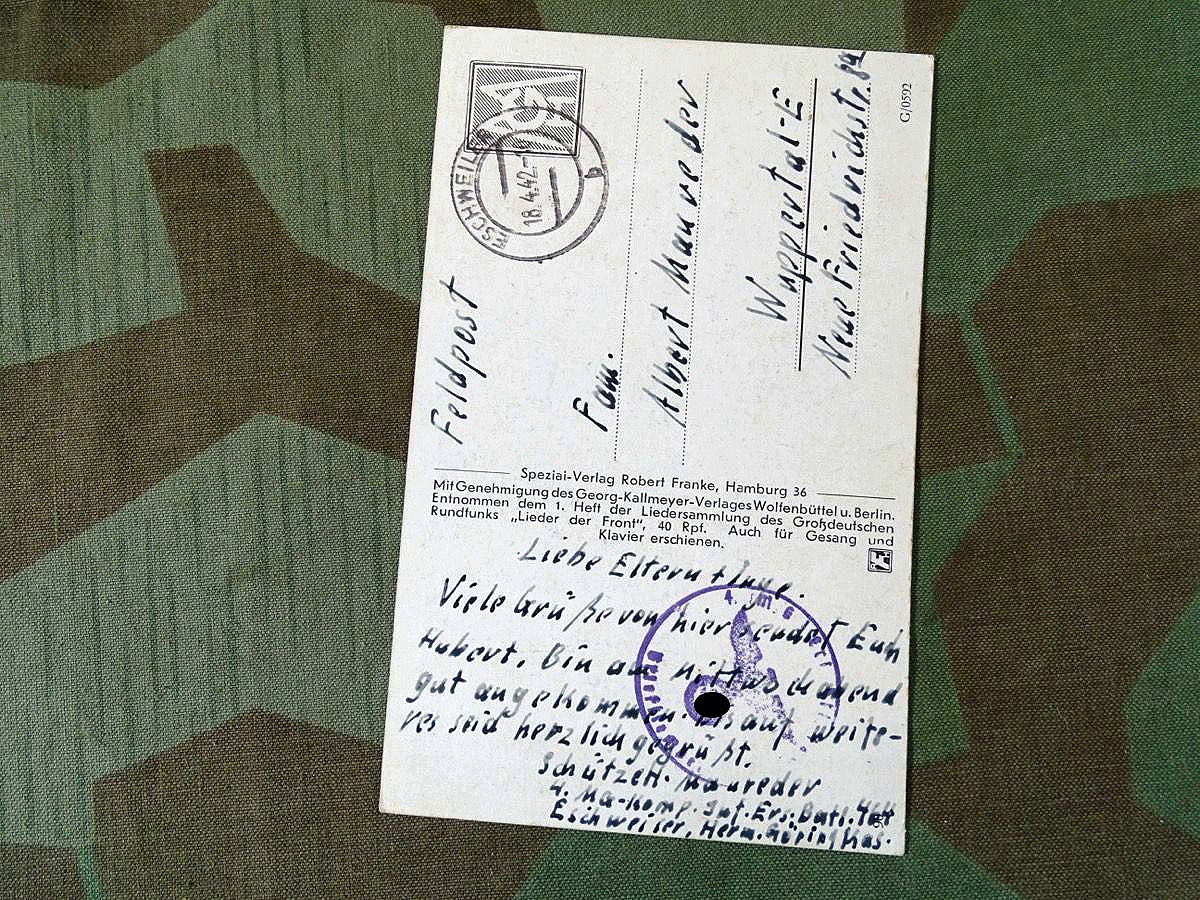 ESCHWEILER
18.4.42.
b
Feldpost
Fam.
Albert Maureder
Wuppertal-E
Neue Friedrichstr. 84
G/0592
Speziai-Verlag Robert Franke, Hamburg 36
Mit Genehmigung des Georg-Kallmeyer-Verlages Wolfenbüttel u. Berlin.
Entnommen dem 1. Heft der Liedersammlung des Großdeutschen
Rundfunks „Lieder der Front“, 40 Rpf. Auch für Gesang und
Klavier erschienen.
Liebe Eltern +
Viele Grüße von hier sendet Euch
Hubert. Bin am Mittwochabend
gut angekommen. Bis auf weite-
res seid herzlich gegrüßt.
Schütze H. Maureder
4. MG-Komp. Inf. Ers. Batl. 464
Eschweiler, Herm. Göring Kas.